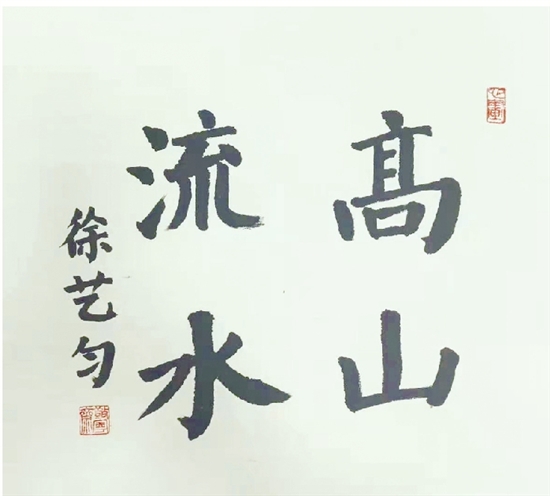 髙山
流水
徐艺匀